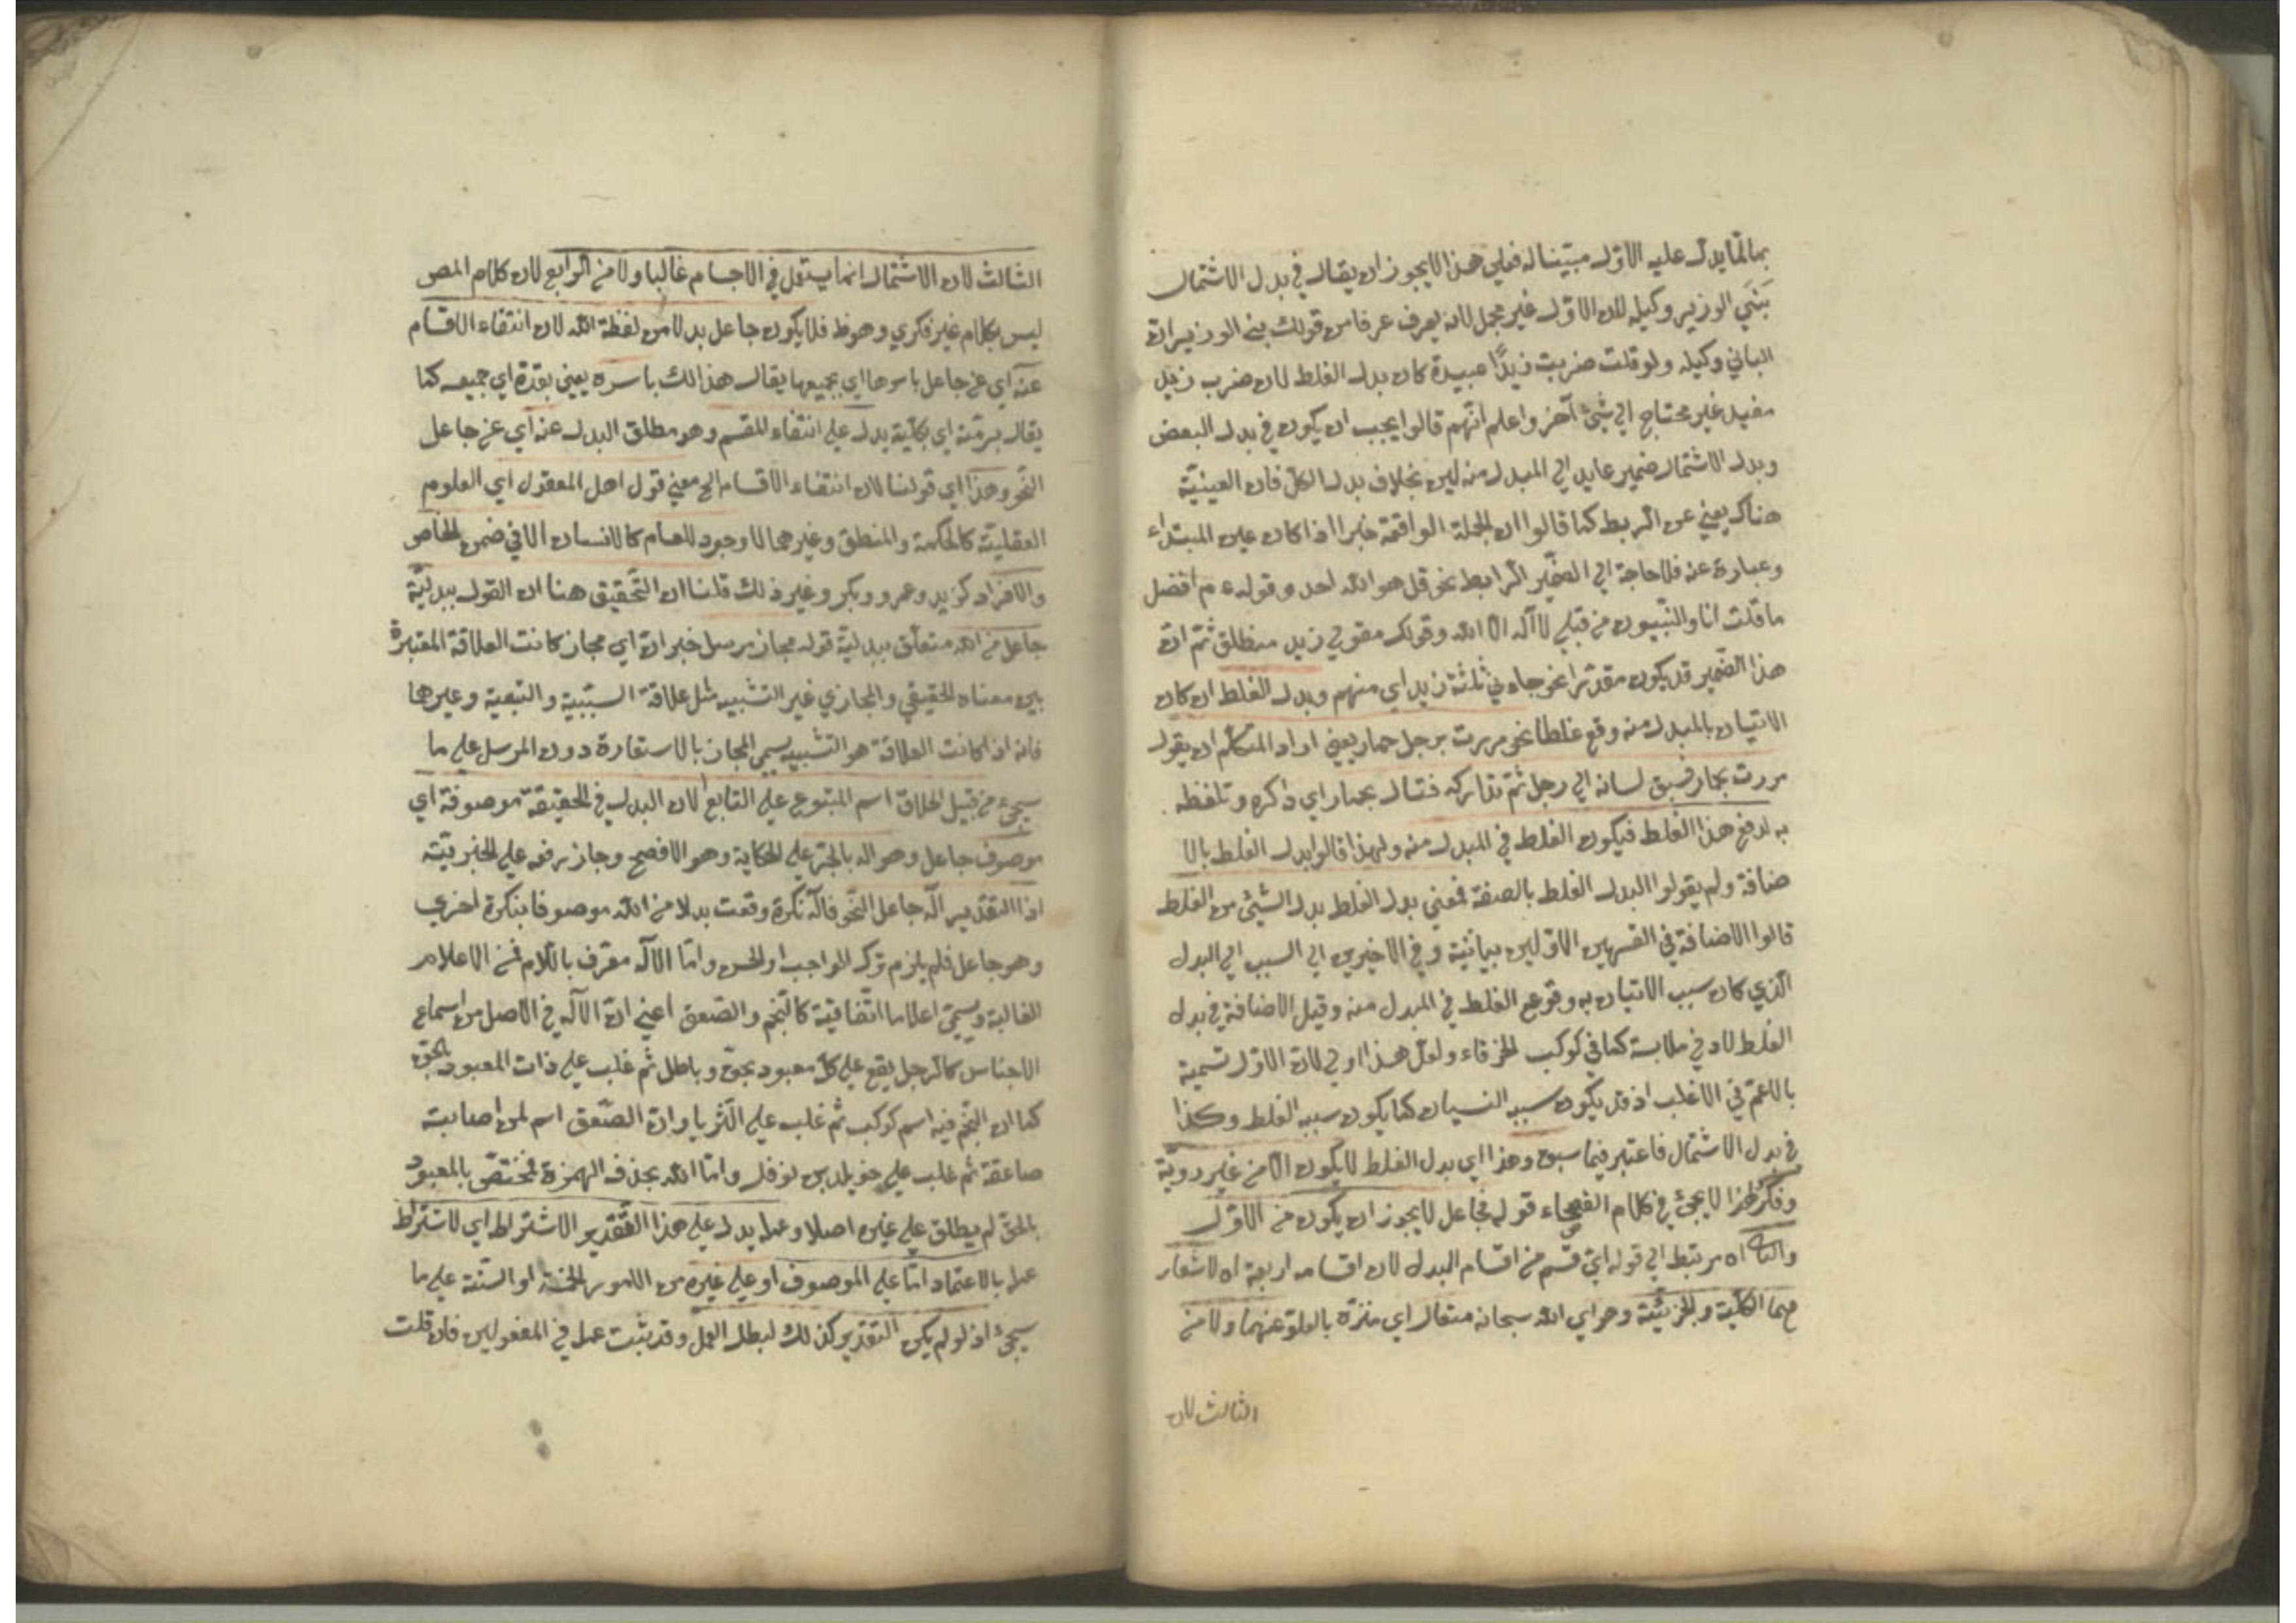 بما لما يدل عليه الاول مبيّنا له فعلي هذا لا يجوز ان يقال في بدل الاشتمال
بَنَي الوزير وكيله لان الاول غير مجمل لانه يعرف عرفا من قولك بني الوزير ان
الباني وكيله ولو قلت ضربت زيدًا عبيدة كان بدل الغلط لان ضرب زيد
مفيد غير محتاج الي شيئ آخر واعلم انّهم قالوا يجب ان يكون في بدل البعض
وبدل الاشتمال ضمير عايد الي المبدل منه ليس بخلاف بدل الكل فان العينيّة
هناك يغني عن الربط كما قالوا ان الجملة الواقعة خبرا اذا كان عين المبتداء
وعبارة عنه فلا حاجة الي الضمير الرابط نحو قل هو الله احد وقوله ع م افضل
ما قلت انا والنّبيون من قبلي لا اله الا الله وقولك مقولي زيد منطلق ثمّ انّ
هذا الضّمير قد يكون مقدّرا نحو جاءني ثلثة زيد اي منهم وبدل الغلط ان كان
الاتيان بالمبدل منه وقع غلطا نحو مررت برجل حمار يعني اراد المتكلم ان يقول
مررت بحمار فسبق لسانه الي رجل ثمّ تداركه فقال بحمار اي ذاكره وتلفظه
به لدفع هذا الغلط فيكون الغلط في المبدل منه ولهذا قالوا بدل الغلط بالا
ضافة ولم يقولوا البدل الغلط بالصفة فمعني بدل الغلط بدل الشيئ من الغلط
قالوا الاضافة في القسمين الاولين بيانيّة وفي الاخيرين الي السبب اي البدل
الّذي كان سبب الاتيان به وقوع الغلط في المبدل منه وقيل الاضافة في بدل
الغلط لادني ملابسة كما في كوكب الخرقاء ولعل هذا اولي لان الاول تسمية
بالاعمّ في الاغلب اذ قد يكون سببه النسيان كما يكون سببه الغلط وكذا
في بدل الاشتمال فاعتبر فيما سبق وهذا اي بدل الغلط لا يكون الا من غير رويّة
وفكر ولهذا لا يجئ في كلام الفصحاء قوله فجاعل لا يجوز ان يكون من الاول
والثا اه مرتبط الي قوله ايّ قسم من اقسام البدل لان اقسامه اربعة اه لاشعار
هما الكلّية والجزئيّة وهو اي الله سبحانه متعال اي منزّه بالعلو عنهما ولا من
الثالث لان
الثالث لان الاشتمال انما يستعمل في الاجسام غالبا ولا من الرابع لان كلام المص
ليس بكلام غير فكري وهو ظ فلا يكون جاعل بدلا من لفظة الله لان انتفاء الاقسام
عنه اي عن جاعل باسرها اي بجميعها يقال هذا لك باسره يعني بقدّه اي جميعه كما
يقال برمّته اي بكلّيّته يدل علي انتفاء المقسم وهو مطلق البدل عنه اي عن جاعل
النّحو وهذا اي قولنا لان انتفاء الاقسام الخ معني قول اهل المعقول اي العلوم
العقليّة كالحكمة والمنطق وغيرهما لا وجود للعام كالانسان الا في ضمن الخاص
والافراد كزيد وعمرو وبكر وغير ذلك قلنا ان التّحقيق هنا ان القول ببدليّة
جاعل من الله متعلّق ببدليّة قوله مجاز مرسل خبر انّ اي مجاز كانت العلاقة المعتبرة
بين معناه الحقيقي والمجازي غير التشبيه مثل علاقة السّببيّة والتبعية وغيرهما
فانه اذا كانت العلاقة هو التشبيه يسمي المجاز بالاستعارة دون المرسل علي ما
سيجئ من قبيل اطلاق اسم المتبوع علي التابع لان البدل في الحقيقة موصوفه اي
موصوف جاعل وهو اله بالجرّ علي الحكاية وهو الافصح وجاز رفعه علي الخبريّة
اذا التقدير آله جاعل النّحو فآله نكرة وقعت بدلا من الله موصوفا بنكرة اخري
وهو جاعل فلم يلزم ترك الواجب او الحسن وامّا الاله معرّف باللام فمن الاعلام
الغالبة ويسمّي اعلاما اتّفاقية كالنّجم والصّعق اعني انّ الاله في الاصل من اسماء
الاجناس كالرجل يقع علي كل معبود بحقّ وباطل ثم غلب علي ذات المعبود بالحق
كما ان النّجم فيه اسم كوكب ثم غلب علي الثّريا وانّ الصّعق اسم لمن اصابته
صاعقة ثم غلب علي خويلد بن نوفل وامّا الله بحذف الهمزة فمختصّ بالمعبود
بالحق لم يطلق علي غيره اصلا وعمله يدل علي هذا التّقدير الاشتراط اي لاشتراط
عمله بالاعتماد امّا علي الموصوف او علي غيره من الامور الخمسة او الستّة علي ما
سيجئ اذ لو لم يكن التقدير كذلك لبطل العمل وقد يثبت عمله في المفعولين فان قلت